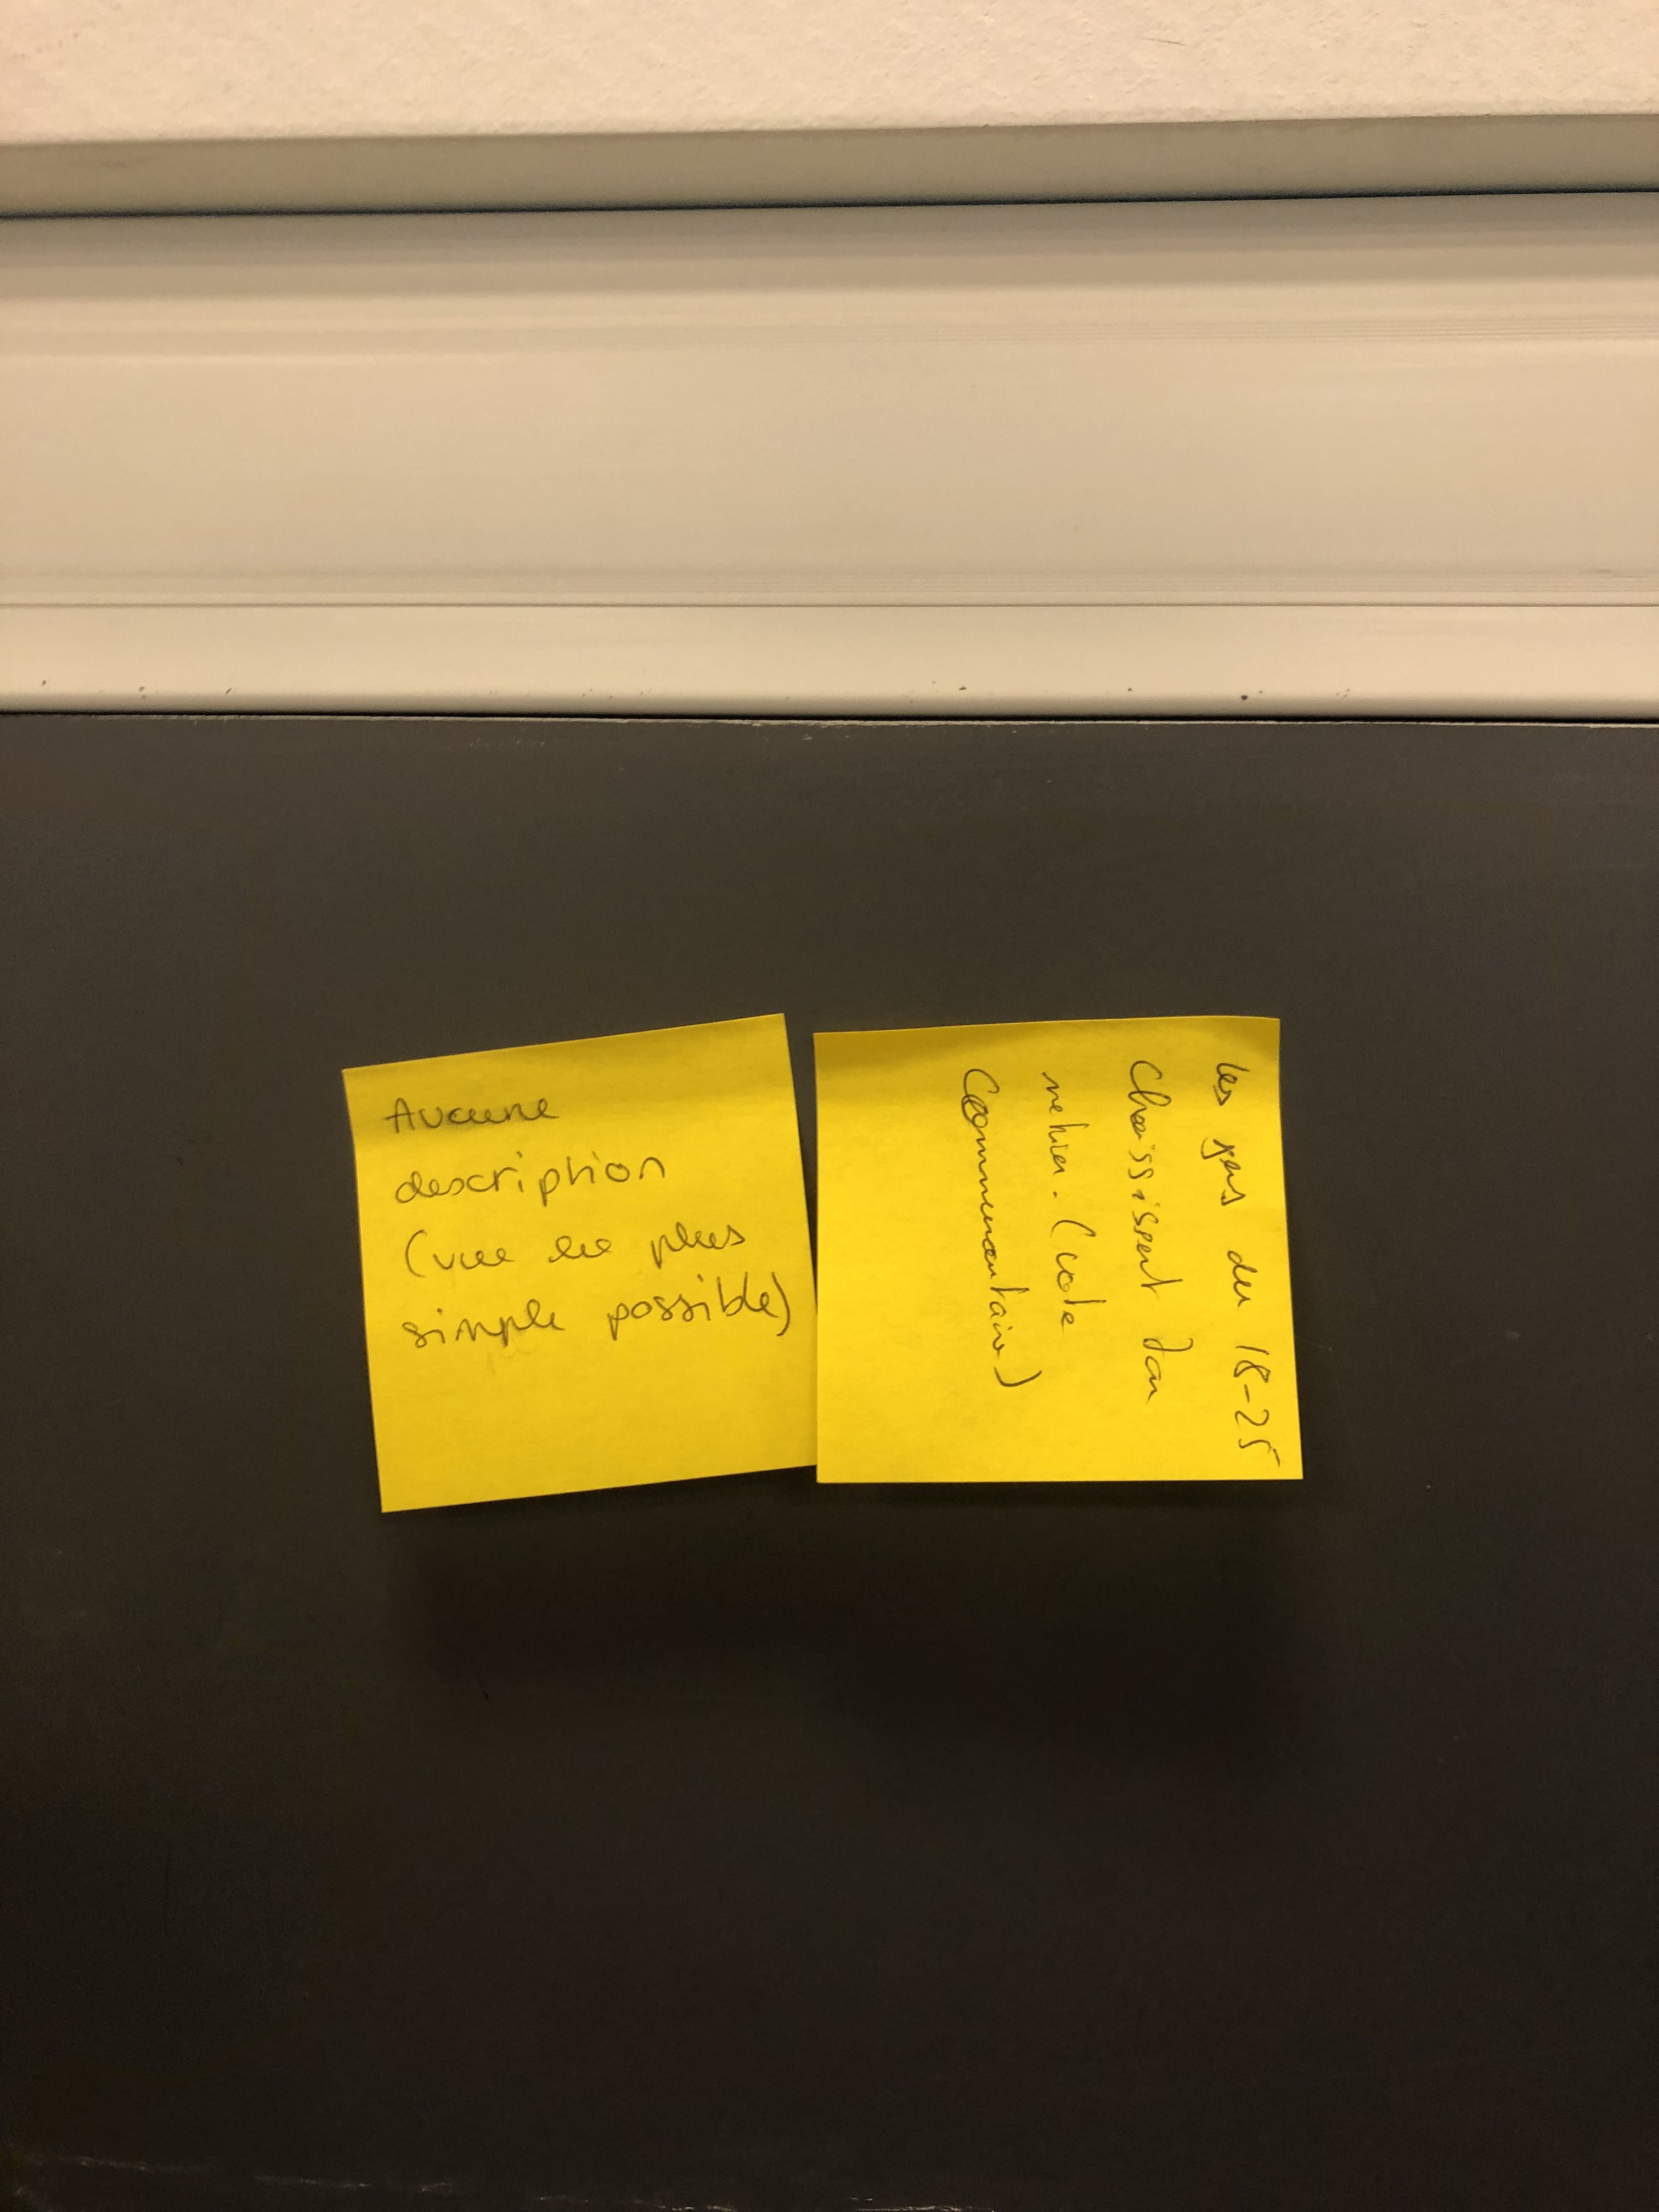 Aucune
description
(vue la plus
simple possible)
les gens du 18-25
Choisissent ton
métier. (code
Communautaire)